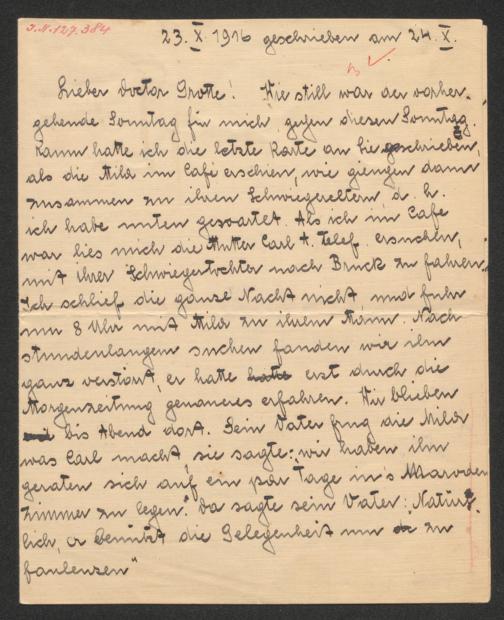 J.N. 127.384
23. X. 1916 geschrieben am 24. X.
Lieber Doctor Grotte! Wie still war der vorher-
gehende Sonntag für mich gegen diesen Sonntag.
Kaum hatte ich die letzte Karte an Sie geschrieben,
als die Mild im Café erschien, wir giengen dann
zusammen zu ihren Schwiegereltern, d. h.
ich habe unten gewartet. Als ich im Café
war lies mich die Mutter Carl A. telef. ersuchen,
mit ihrer Schwiegertochter nach Bruck zu fahren.
Ich schlief die ganze Nacht nicht und fuhr
um 8 Uhr mit Mild zu ihrem Mann. Nach
stundenlangem suchen fanden wir ihn
ganz verstört, er hatte hatte erst durch die
Morgenzeitung genaueres erfahren. Wir blieben
bis Abend dort. Sein Vater frug die Mild
was Carl macht, sie sagte: „wir haben ihm
geraten sich auf ein par Tage in's Maroden
zimmer zu legen." Da sagte sein Vater: „Natür-
lich, er benützt die Gelegenheit um zu
faulenzen"